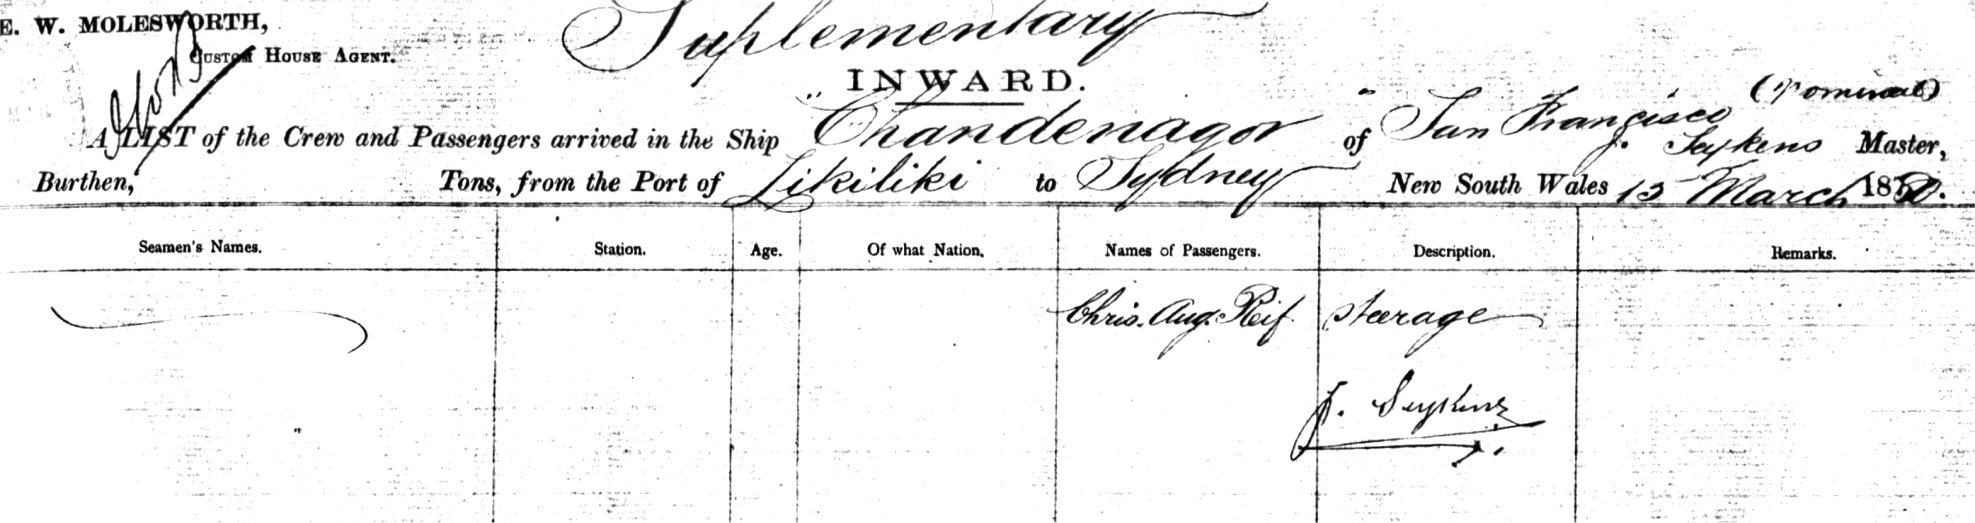 E. W. MOLESWORTH,
CUSTOM HOUSE AGENT.
Suplementary
INWARD.
(Nominal)
A LIST of the Crew and Passengers arrived in the Ship "Chandenagor" of San Francisco J. Seykens Master,
Burthen, Tons, from the Port of Likiliki to Sydney New South Wales 13 March 1880.
Seamen's Names. Station. Age. Of what Nation. Names of Passengers. Description. Remarks.
Chris. Aug. Reif Steerage
J. Seykens